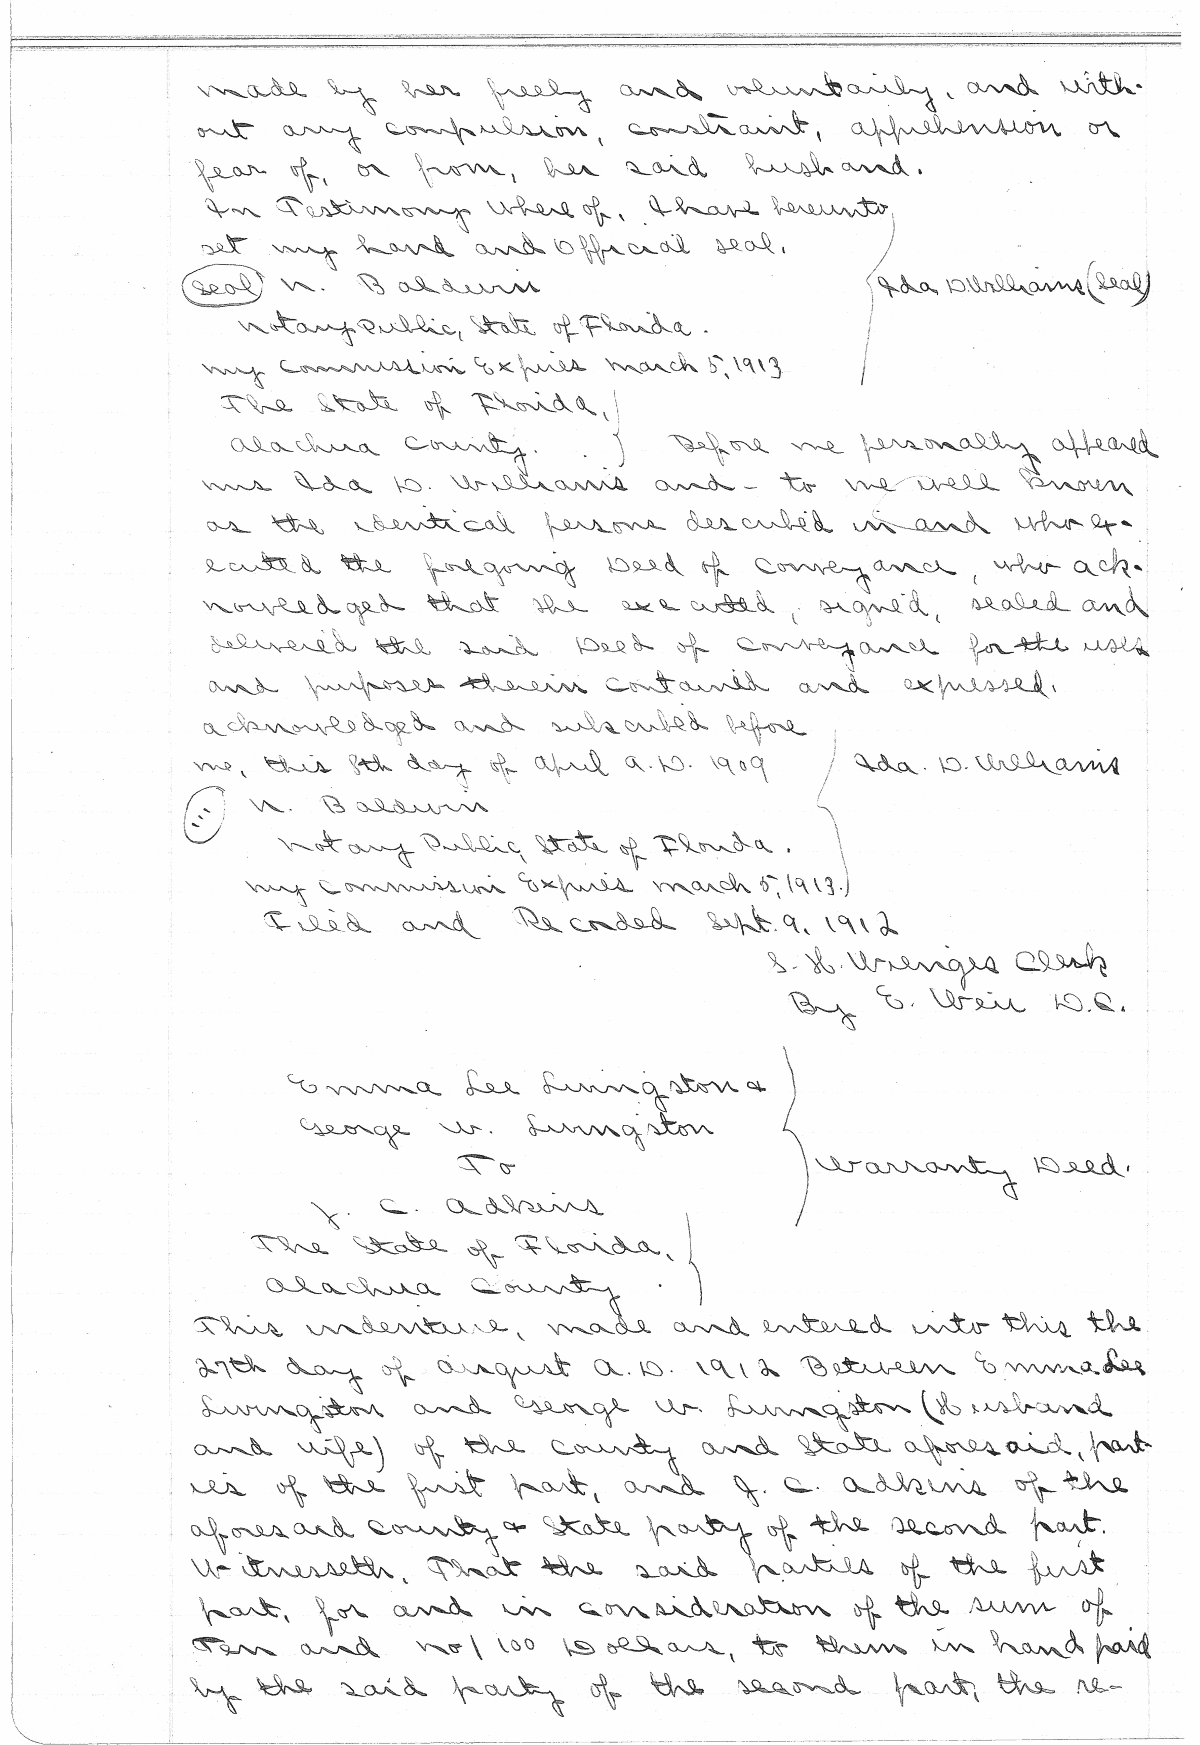 made by her freely and voluntarily, and with-
out any compulsion, constraint, apprehension or
fear of, or from, her said husband.
In Testimony Whereof, I have hereunto
set my hand and Official seal.
Seal N. Baldwin
Ada D Williams (Seal)
Notary Public, State of Florida.
My Commission Expires March 5, 1913
The State of Florida,
Alachua County. Before me personally appeared
Mrs Ada D. Williams and - to me well known
as the identical persons described in and who ex-
ecuted the foregoing Deed of Conveyance, who ack-
nowledged that she executed, signed, sealed and
delivered the said Deed of Conveyance for the uses
and purposes therein contained and expressed.
acknowledged and subscribed before
me, this 8th day of April A.D. 1909 Ada. D. Williams
N. Baldwin
Notary Public, State of Florida.
My Commission Expires March 5, 1913.
Filed and Recorded Sept. 9, 1912
S. H. Wienges Clerk
By E. Weir D.C.
Emma Lee Livingston &
George W. Livingston
To
Warranty Deed.
J. C. Adkins
The State of Florida,
Alachua County
This indenture, made and entered into this the
27th day of August A.D. 1912 Between Emma Lee
Livingston and George W. Livingston (Husband
and wife) of the County and State aforesaid, part-
ies of the first part, and J. C. Adkins of the
aforesaid county & State party of the second part.
Witnesseth, That the said parties of the first
part, for and in consideration of the sum of
Ten and no/100 Dollars, to them in hand paid
by the said party of the second part, the re-